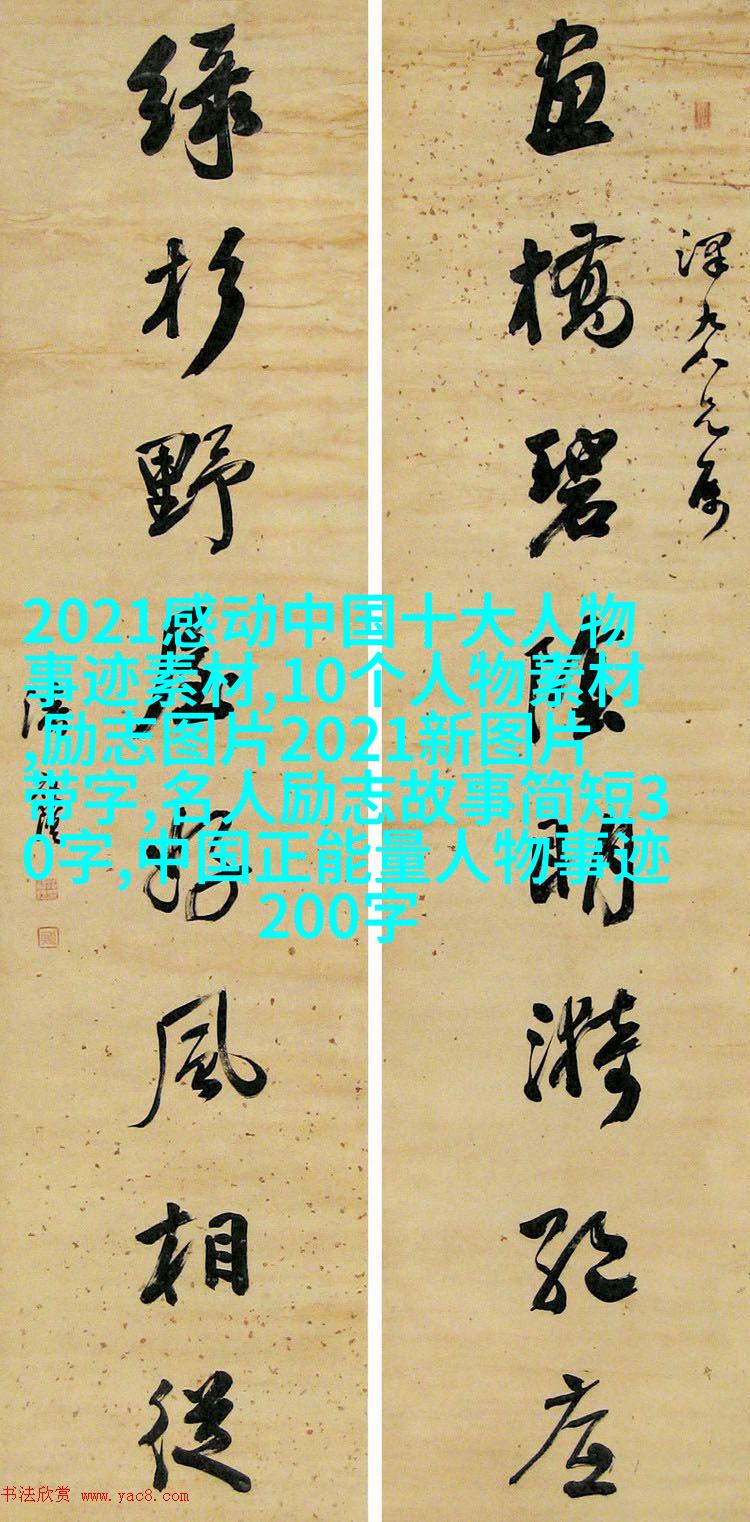 畫橋碧陰明漪絕底
綠杉野屋好風相從
2021感动中国十大人物
事迹素材,10个人物素材
,励志图片2021新图片
带字,名人励志故事简短3
0字,中国正能量人物事迹
200字
书法欣赏 www.yac8.com